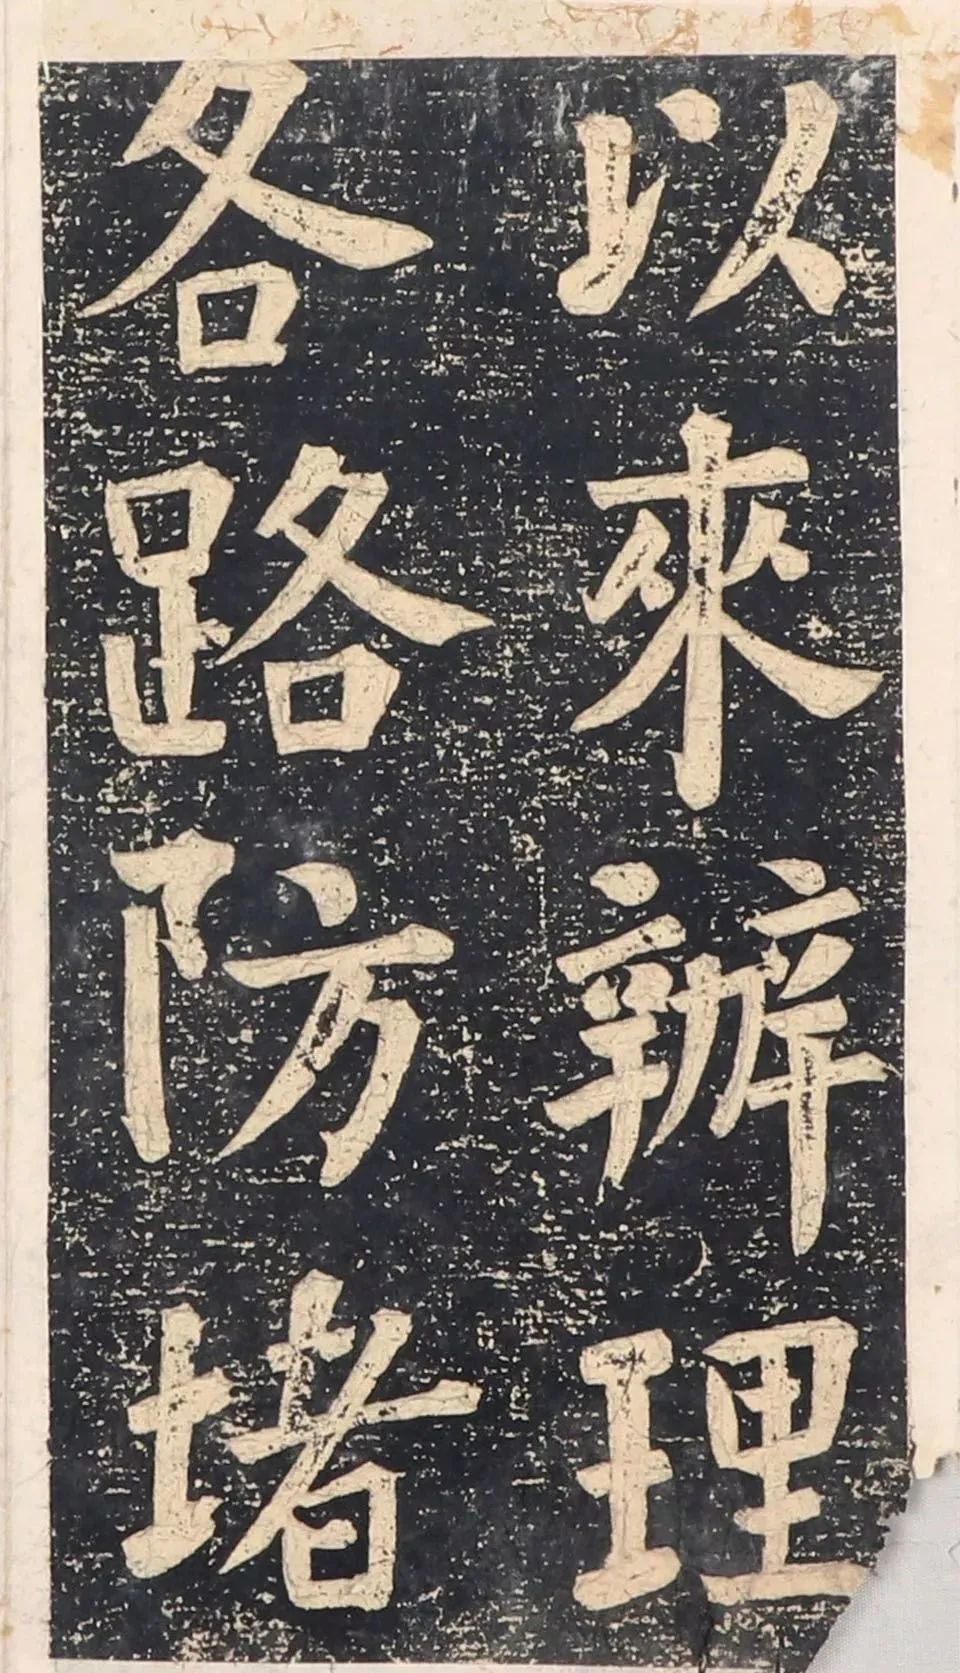 以來辦理
各路防堵